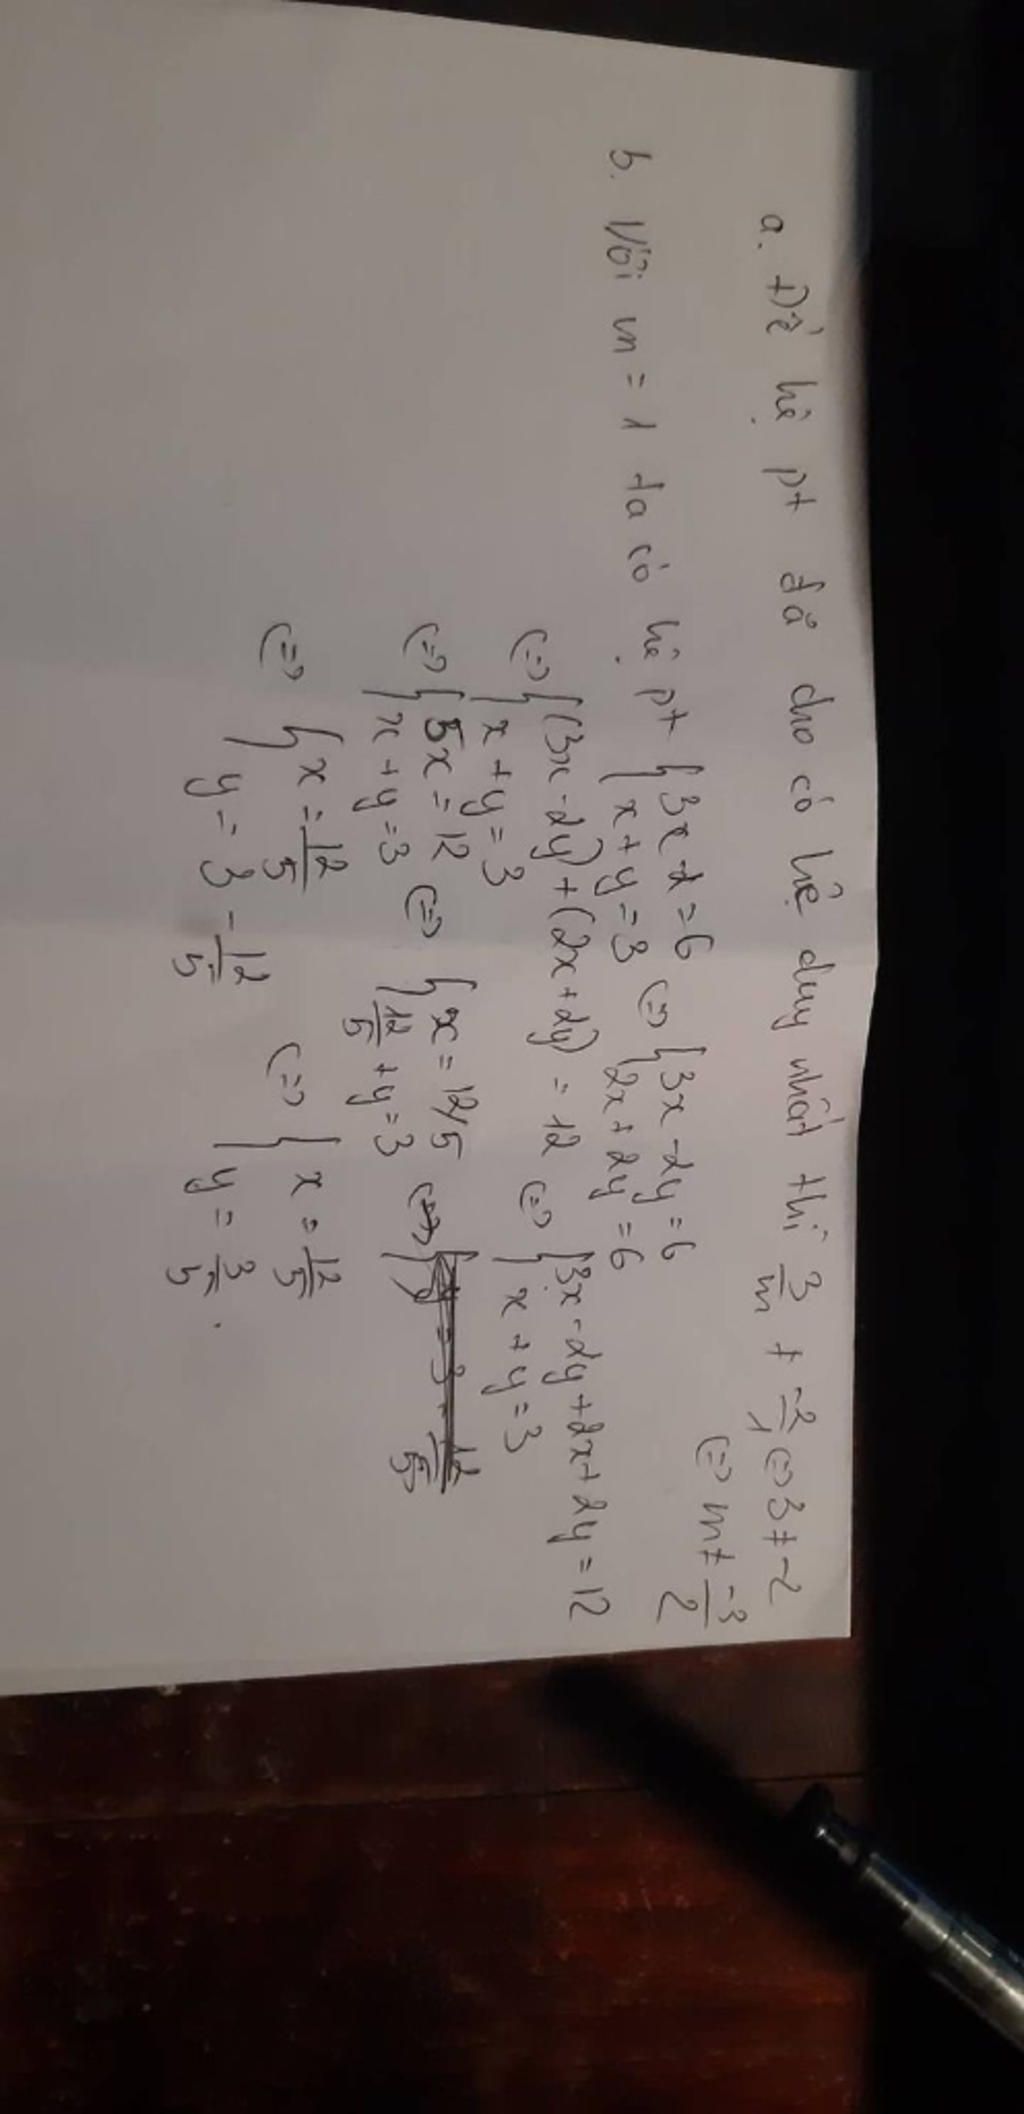 a. Để hệ pt đã cho có hệ duy nhất thì 3/m ≠ -2/1 (=) 3 ≠ -2
(=) m ≠ -3/2
b. Với m = 1 ta có hệ pt { 3x - 2 = 6 (=) { 3x - 2y = 6
x + y = 3 2x + 2y = 6
(=) { (3x - 2y) + (2x + 2y) = 12 (=) { 3x - 2y + 2x + 2y = 12
x + y = 3 x + y = 3
(=) { 5x = 12 (=) { x = 12/5 (=)
x + y = 3 12/5 + y = 3
(=) { x = 12/5 (=) { x = 12/5
y = 3 - 12/5 y = 3/5.